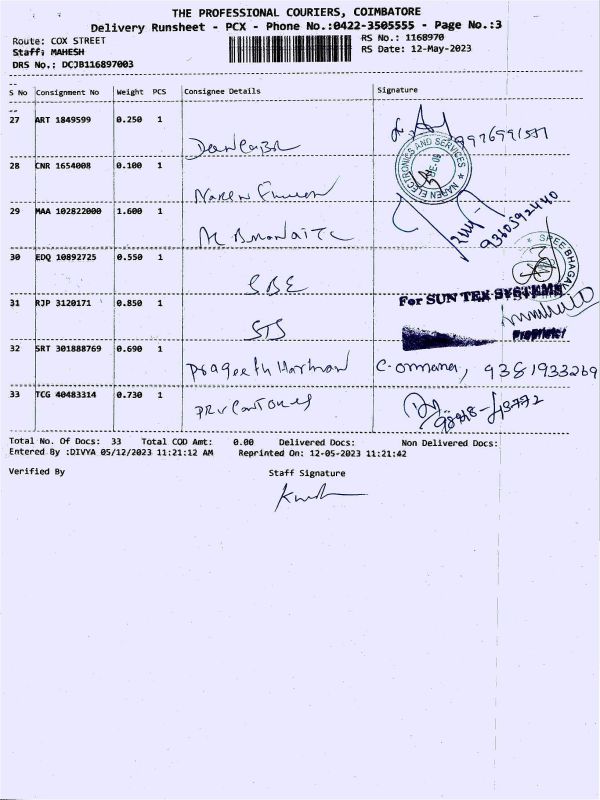 THE PROFESSIONAL COURIERS, COIMBATORE
Delivery Runsheet - PCX - Phone No.:0422-3505555 - Page No.:3
Route: COX STREET
Staff: MAHESH
DRS No.: DCJB116897003
RS No.: 1168970
RS Date: 12-May-2023
S No Consignment No Weight PCS Consignee Details Signature
27 ART 1849599 0.250 1
28 CNR 1654008 0.100 1 Naren
29 MAA 102822000 1.600 1
30 EDQ 10892725 0.550 1 SBE
31 RJP 3120171 0.850 1 STS
32 SRT 301888769 0.690 1 9381933269
33 TCG 40483314 0.730 1
NAREN ELECTRONICS AND SERVICES
9360592440
SREE BHAGAV
For SUN TEX SYSTEMS
Proprietor
Total No. Of Docs: 33 Total COD Amt: 0.00 Delivered Docs: Non Delivered Docs:
Entered By :DIVYA 05/12/2023 11:21:12 AM Reprinted On: 12-05-2023 11:21:42
Verified By Staff Signature